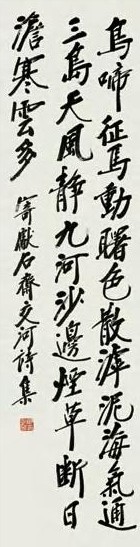 鳥啼征馬動曙色散滹泥海氣通
三島天風靜九河沙邊煙草斷日
澹寒雲多 寄獻石齋交河詩集